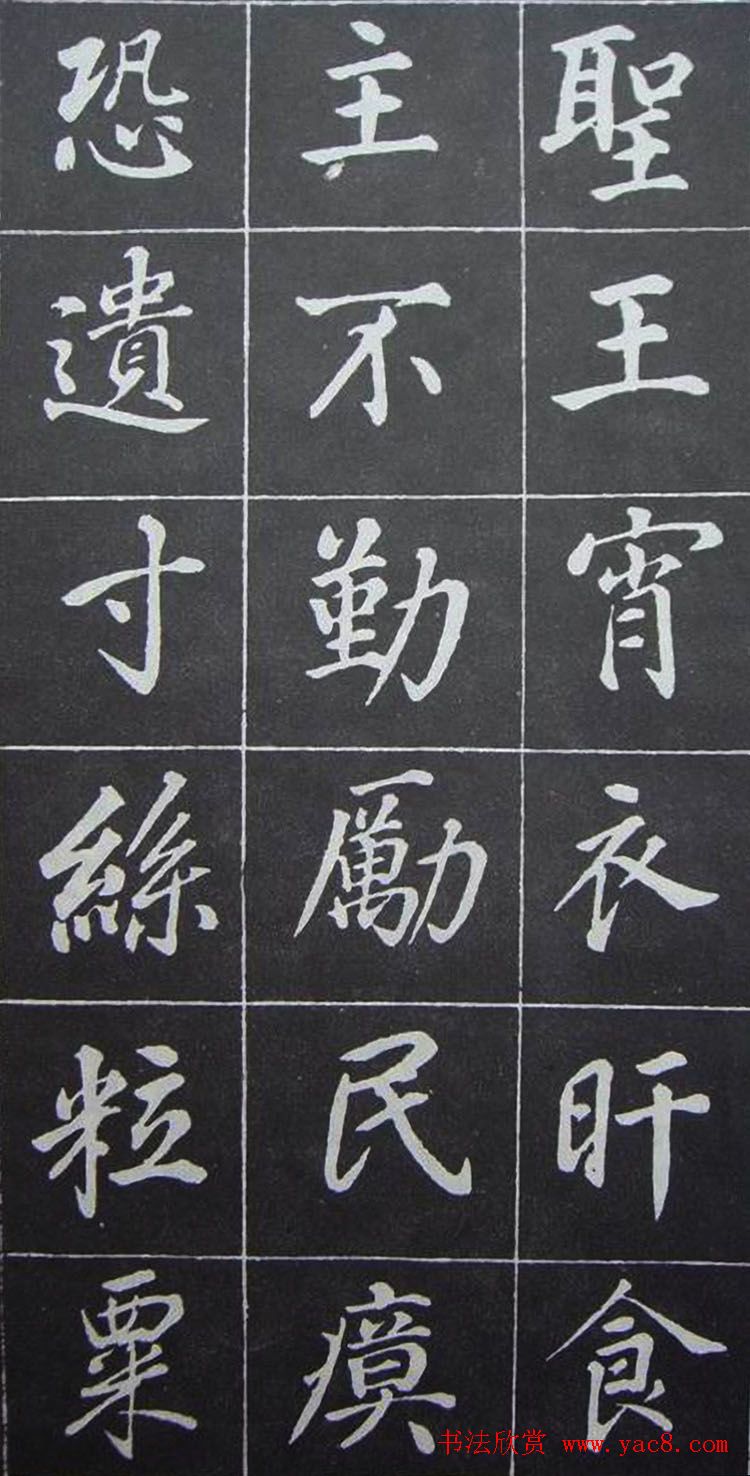 聖王宵衣旰食
主不勤勵民瘼
恐遺寸絲粒粟
书法欣赏 www.yac8.com